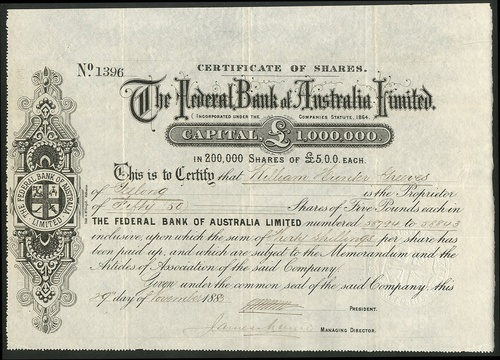 Nº 1396
CERTIFICATE OF SHARES.
The Federal Bank of Australia Limited.
(INCORPORATED UNDER THE COMPANIES STATUTE, 1864.
CAPITAL £1,000,000.
IN 200,000 SHARES OF £5.0.0. EACH.
This is to Certify that William Hunter Greeves
of Geelong is the Proprietor
of Fifty 50 Shares of Five Pounds each in
THE FEDERAL BANK OF AUSTRALIA LIMITED numbered to
inclusive, upon which the sum of shillings per share has
been paid up, and which are subject to the Memorandum and the
Articles of Association of the said Company.
Given under the common seal of the said Company this
29 day of November 188
PRESIDENT.
MANAGING DIRECTOR.
THE FEDERAL BANK OF AUSTRALIA
LIMITED